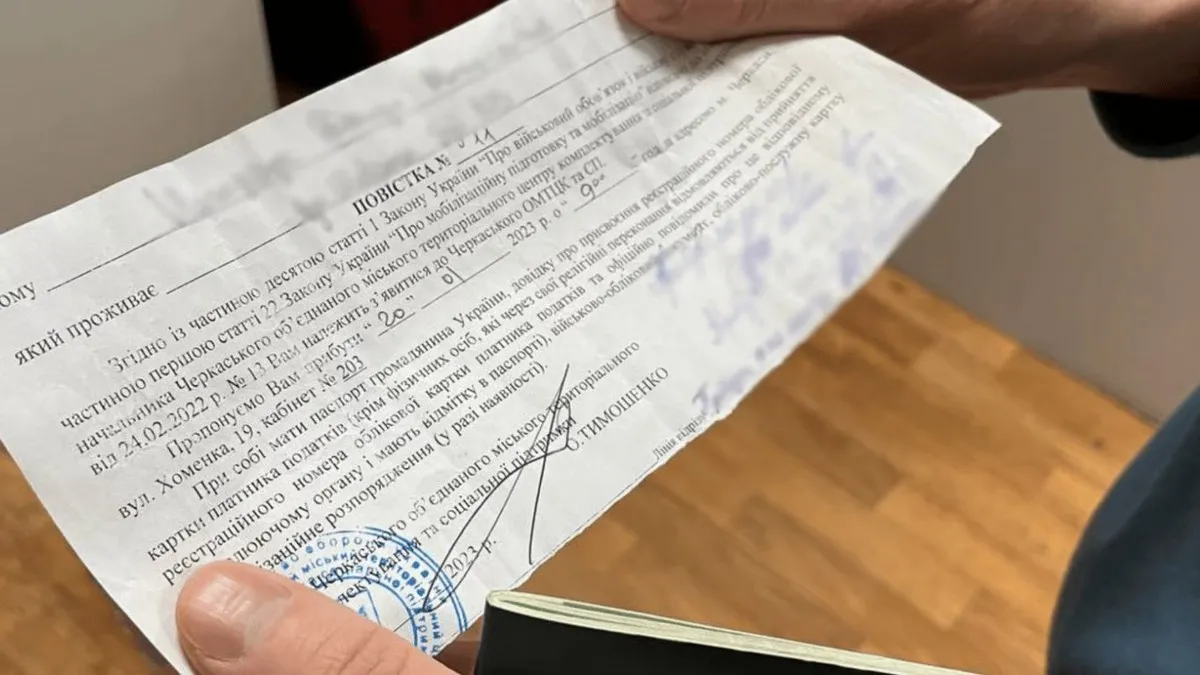 ПОВІСТКА № 11
який проживає
Згідно із частиною десятою статті 1 Закону України "Про військовий обов'язок і
частиною першою статті 22 Закону України "Про мобілізаційну підготовку та мобілізацію"
начальника Черкаського об'єднаного міського територіального центру комплектування та соціальної
від 24.02.2022 р. № 13 Вам належить з'явитися до Черкаського ОМТЦК та СП.
Пропонуємо Вам прибути "20" 01 2023 р. о "9 00" год. за адресою м. Черкаси,
вул. Хоменка, 19, кабінет № 203
При собі мати паспорт громадянина України, довідку про присвоєння реєстраційного номера облікової
картки платника податків (крім фізичних осіб, які через свої релігійні переконання відмовляються від прийняття
реєстраційного номера облікової картки платника податків та офіційно повідомили про це відповідному
органу і мають відмітку в паспорті), військово-обліковий обліково-послужну картку
розпорядження (у разі наявності).
Черкаського об'єднаного міського територіального
та соціальної підтримки
О.ТИМОШЕНКО
2023 р.
Лінія відрізу